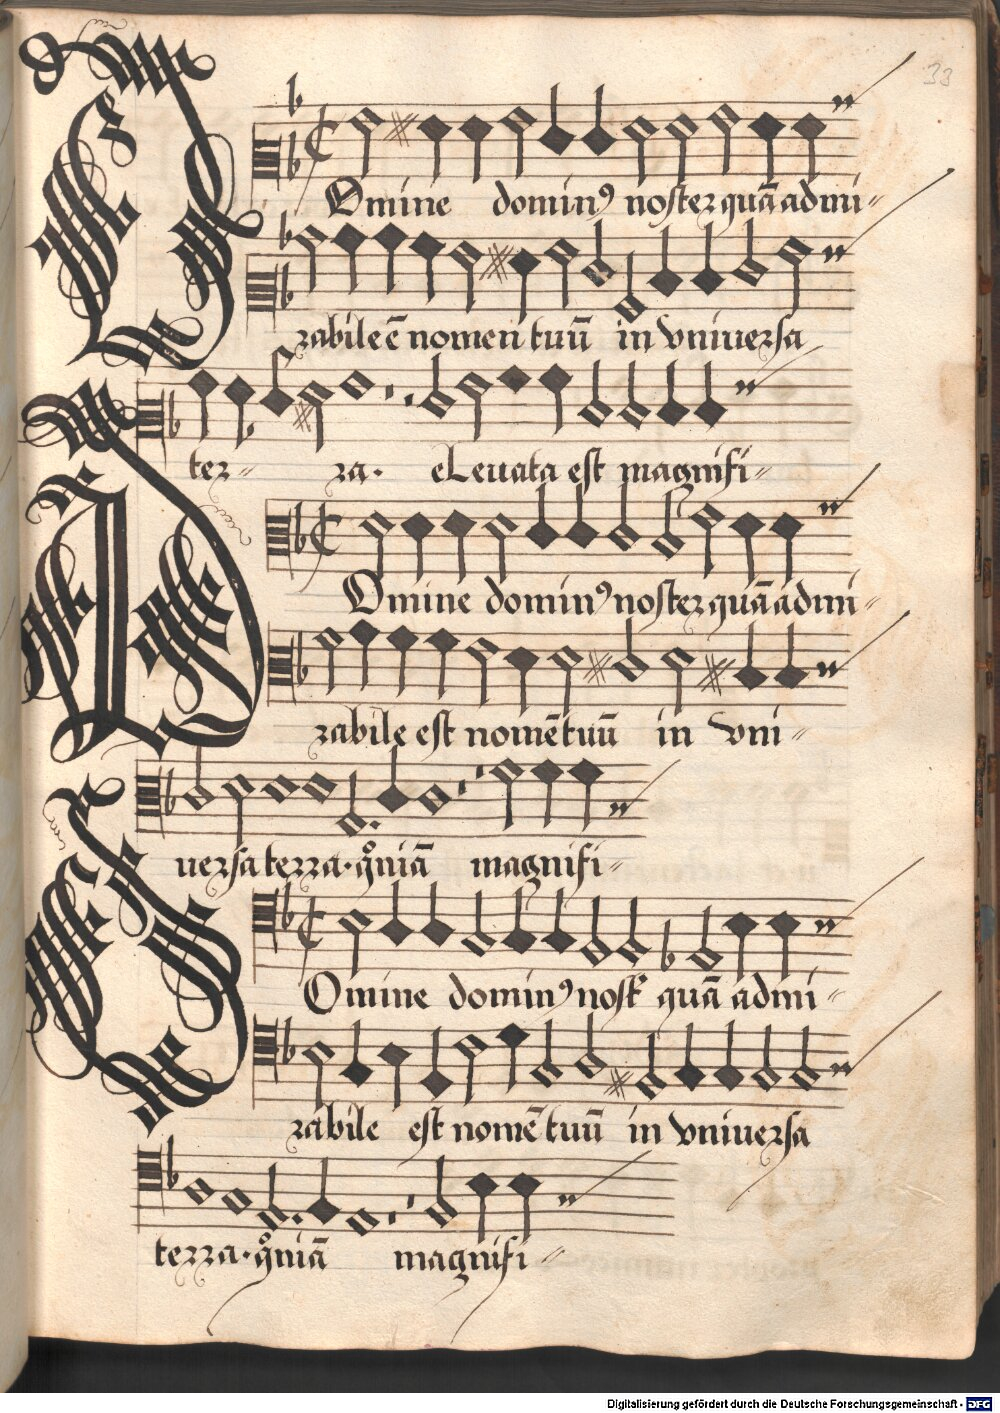 33
Omine dominꝰ noster quā admi-
rabile ē nomen tuū in vniuersa
ter- ra. eleuata est magnifi-
Omine dominꝰ noster quā admi-
rabile est nomē tuū in vni-
uersa terra. qm̊niā magnifi-
Omine dominꝰ nost quā admi-
rabile est nomē tuū in vniuersa
terra. qm̊niā magnifi-
Digitalisierung gefördert durch die Deutsche Forschungsgemeinschaft - DFG